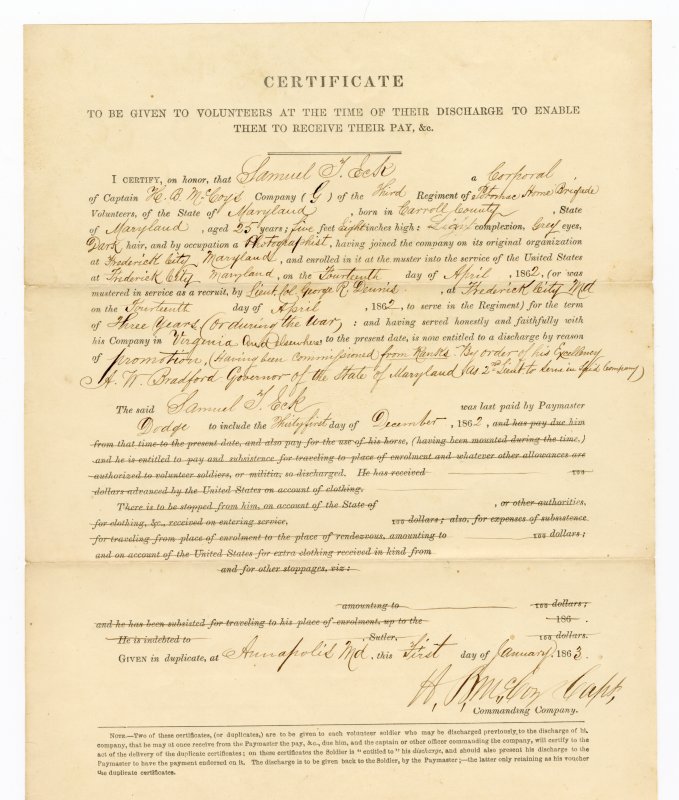 CERTIFICATE
TO BE GIVEN TO VOLUNTEERS AT THE TIME OF THEIR DISCHARGE TO ENABLE
THEM TO RECEIVE THEIR PAY, &c.
I CERTIFY, on honor, that Samuel T. Eck a Corporal
of Captain H. B. McCoys Company (G) of the Third Regiment of Potomac Home Brigade
Volunteers, of the State of Maryland, born in Carroll County, State
of Maryland, aged 25 years; five feet Eight inches high: Light complexion, Grey eyes,
Dark hair, and by occupation a Photographist, having joined the company on its original organization
at Frederick City Maryland, and enrolled in it at the muster into the service of the United States
at Frederick City Maryland, on the Fourteenth day of April, 1862, (or was
mustered in service as a recruit, by Lieut Col. George R. Dennis, at Frederick City Md
on the Fourteenth day of April, 1862, to serve in the Regiment) for the term
of Three Years (or during the War,: and having served honestly and faithfully with
his Company in Virginia and Elsewhere to the present date, is now entitled to a discharge by reason
of promotion, (Having been Commissioned from Ranks. By order of his Excellency
A. W. Bradford Governor of the State of Maryland (as 2nd Lieut to serve in said Company)
The said Samuel T. Eck was last paid by Paymaster
Dodge to include the Thirty first day of December, 1862, and has pay due him
from that time to the present date, and also pay for the use of his horse, (having been mounted during the time.)
and he is entitled to pay and subsistence for traveling to place of enrolment and whatever other allowances are
authorized to volunteer soldiers, or militia, so discharged. He has received 100
dollars advanced by the United States on account of clothing.
There is to be stopped from him, on account of the State of , or other authorities,
for clothing, &c., received on entering service, 100 dollars; also, for expenses of subsistence
for traveling from place of enrolment to the place of rendezvous, amounting to 100 dollars;
and on account of the United States for extra clothing received in kind from
and for other stoppages, viz:
amounting to 100 dollars;
and he has been subsisted for traveling to his place of enrolment, up to the 186 .
He is indebted to , Sutler, 100 dollars.
GIVEN in duplicate, at Annapolis Md, this First day of January, 1863.
H. B. McCoy Capt,
Commanding Company.
NOTE.—Two of these certificates, (or duplicates,) are to be given to each volunteer soldier who may be discharged previously to the discharge of his
company, that he may at once receive from the Paymaster the pay, &c., due him, and the captain or other officer commanding the company, will certify to the
act of the delivery of the duplicate certificates; on these certificates the Soldier is "entitled to" his discharge, and should also present his discharge to the
Paymaster to have the payment endorsed on it. The discharge is to be given back to the Soldier, by the Paymaster;—the latter only retaining as his voucher
the duplicate certificates.